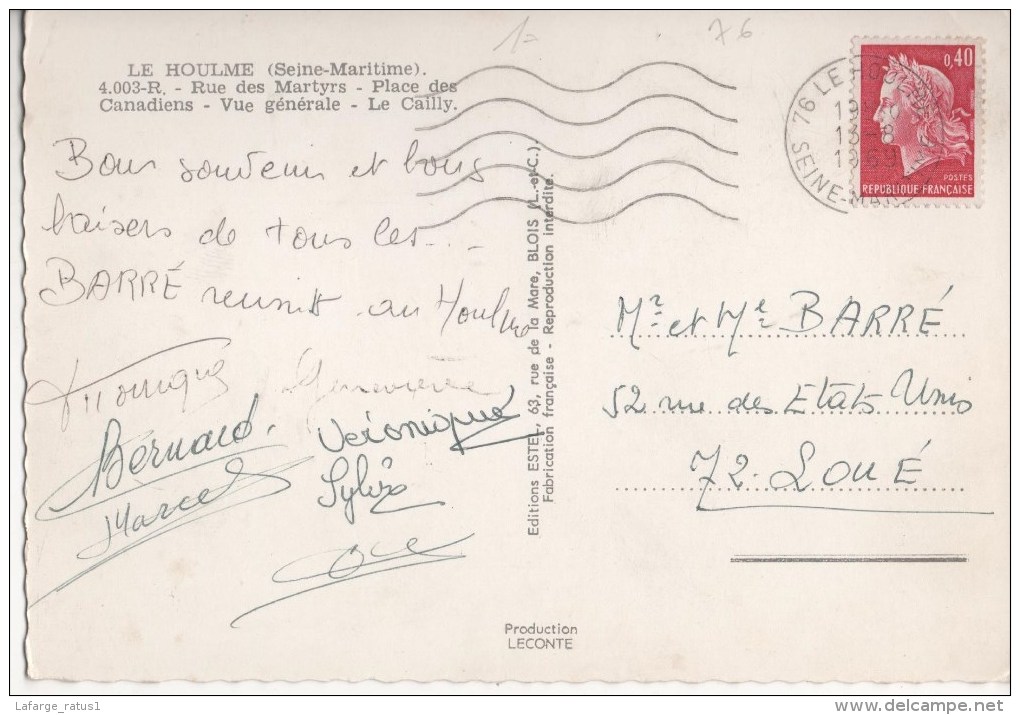 1=
76
LE HOULME (Seine-Maritime).
4.003-R. - Rue des Martyrs - Place des
Canadiens - Vue générale - Le Cailly.
0,40
POSTES
REPUBLIQUE FRANÇAISE
76 LE HOULME
13-8
1969
SEINE-MAR
Bon souvenir et bons
baisers de tous les...
BARRÉ reunit au Houlme
Geneviève
Bernard.
Véronique
Marcel
Sylvie
Editions ESTEL, 63, rue de la Mare, BLOIS (L.-et-C.).
Fabrication française - Reproduction interdite.
Mr et Me BARRÉ
52 rue des Etats Unis
72. LOUÉ
Production
LECONTE
Lafarge_ratus1
www.delcampe.net